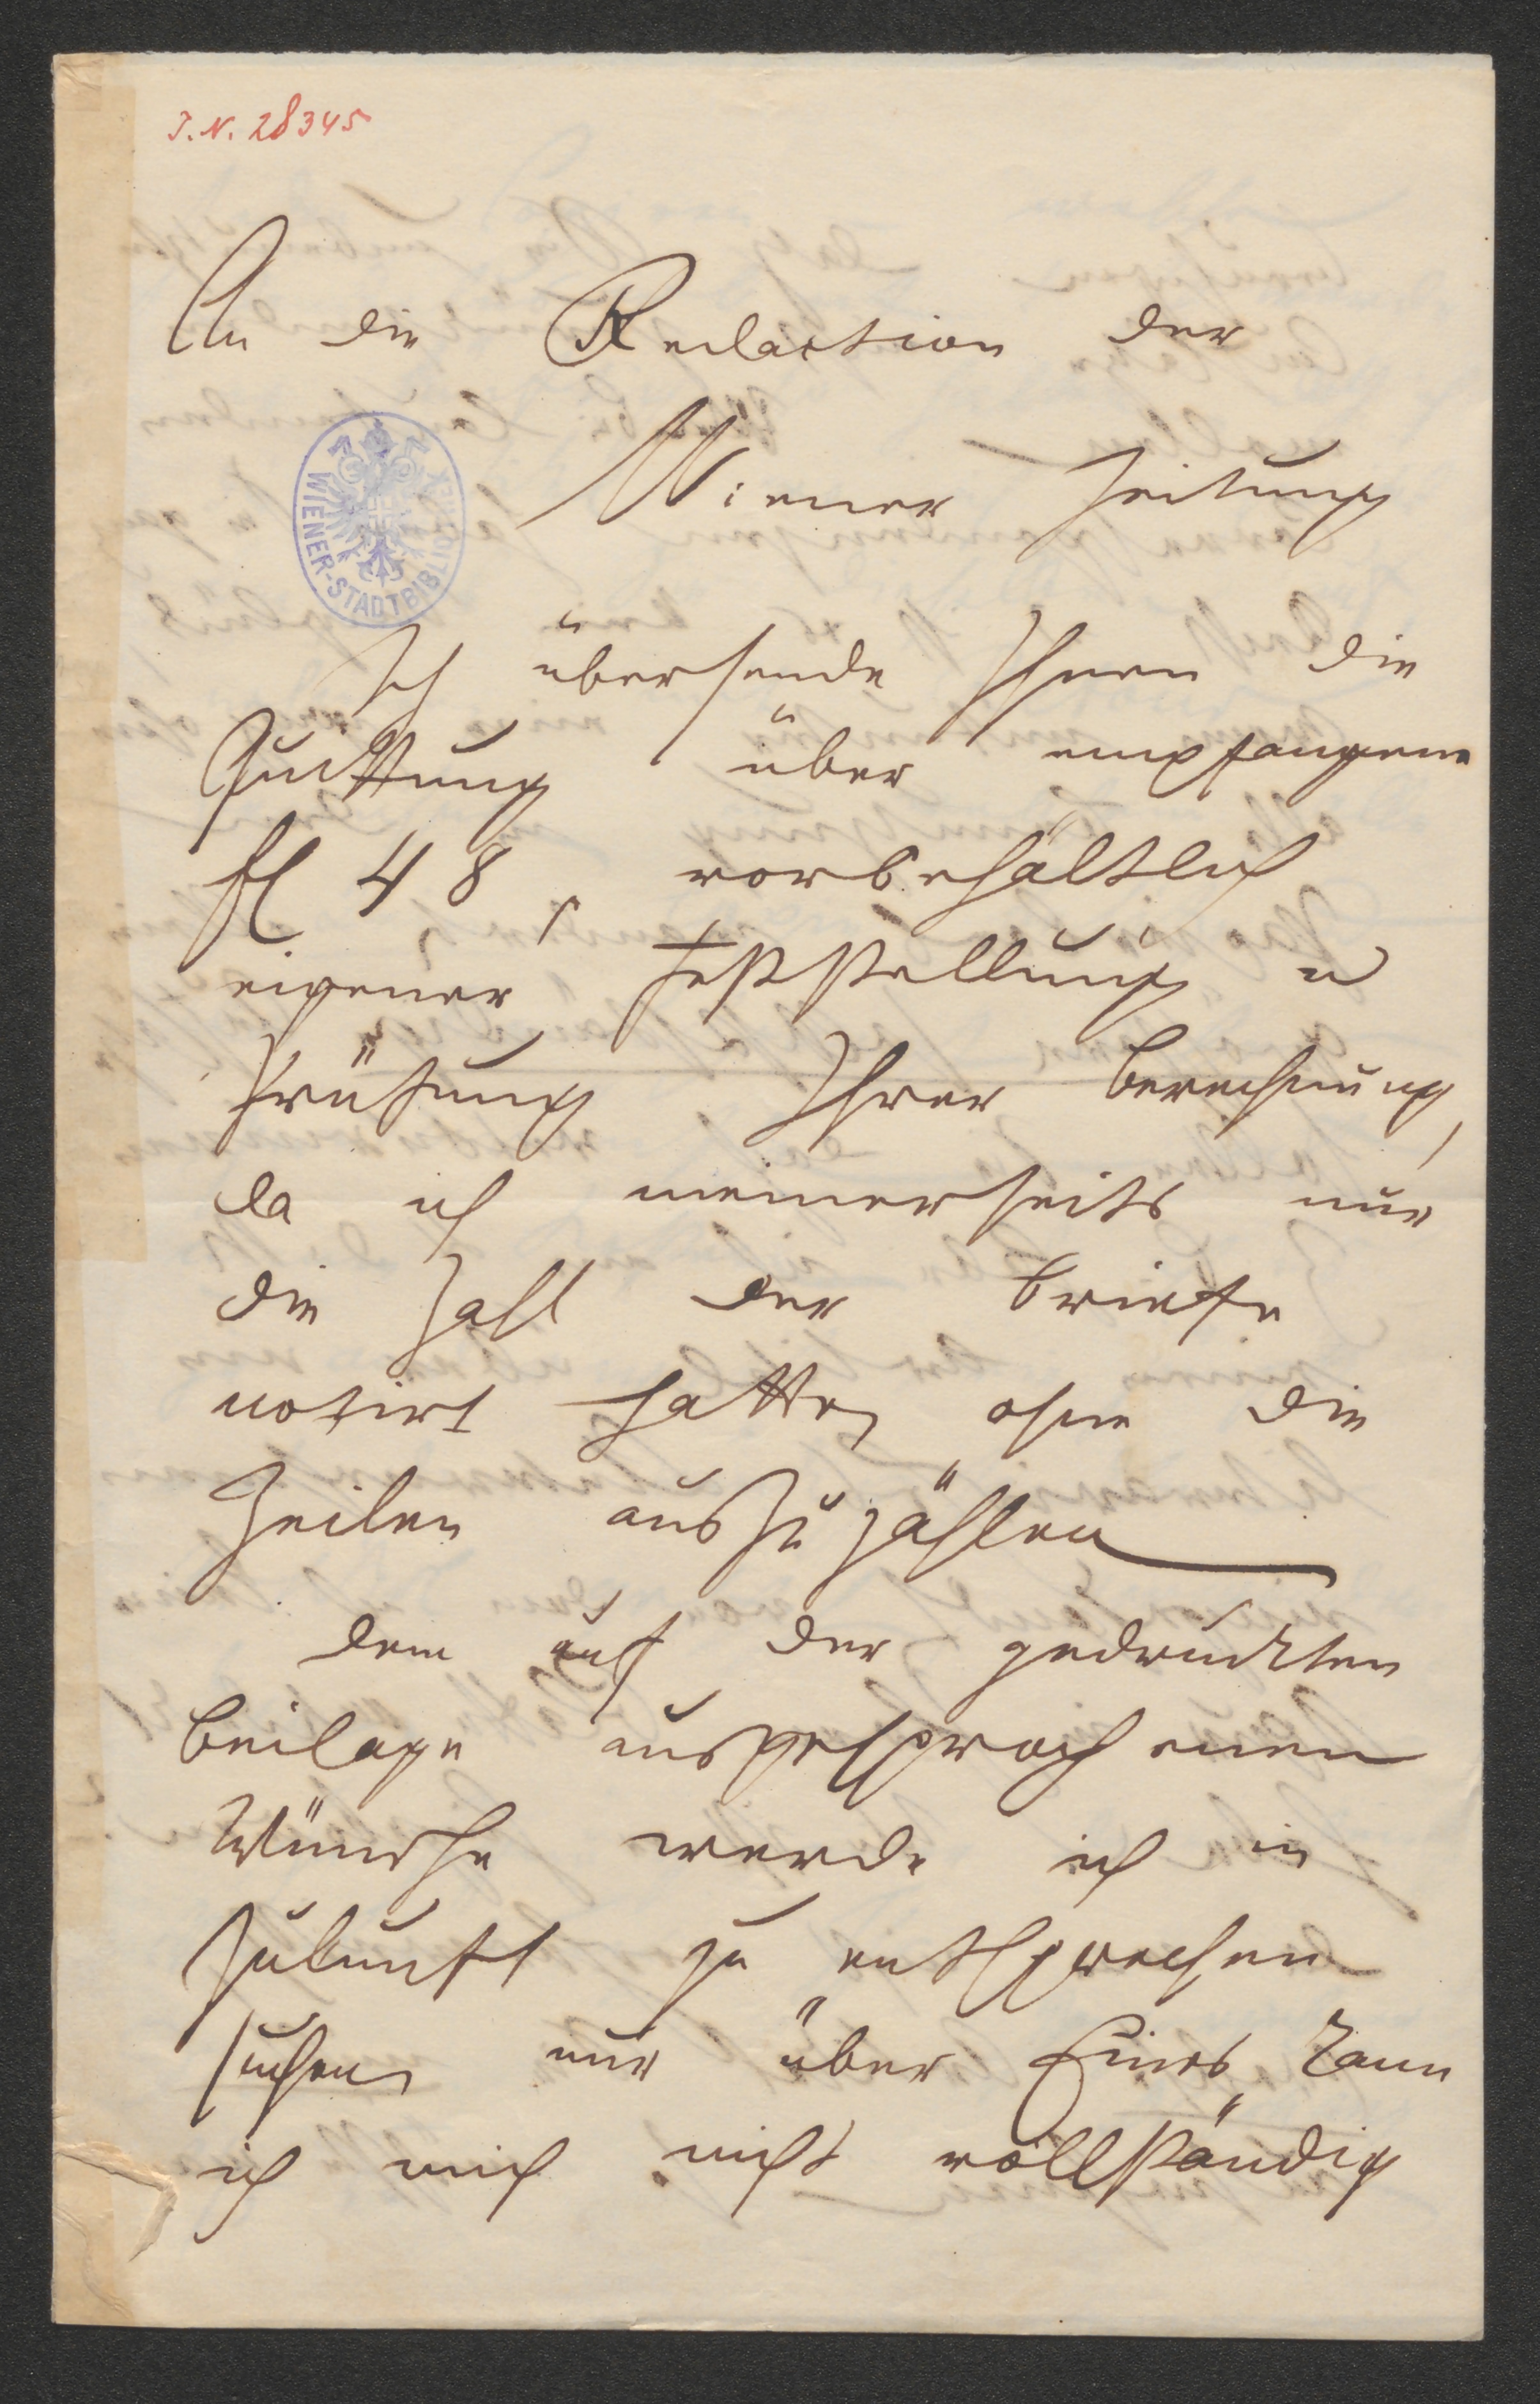 J. N. 28345
An die Redaction der
Wiener Zeitung
WIENER-STADTBIBLIOTHEK
Ich übersende Ihnen die
Quittung über empfangene
fl 48, vorbehältlich
eigener Feststellung u
Prüfung Ihrer Berechnung,
da ich meinerseits nur
die Zahl der Briefe
notirt hatte, ohne die
Zeilen auszuzählen
Dem auf der gedruckten
Beilage ausgesprochenen
Wünsche werde ich in
Zukunft zu entsprechen
suchen, nur über Eines kann
ich mich nicht vollständig